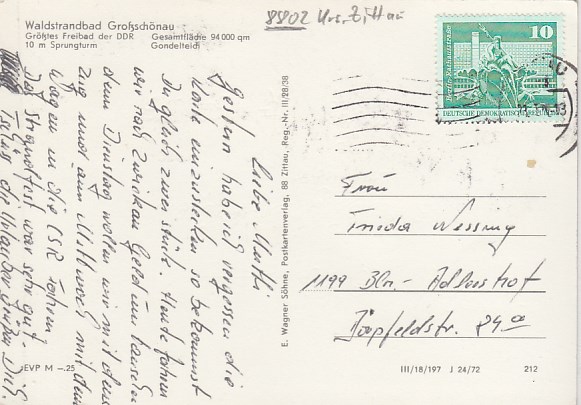 Waldstrandbad Großschönau
Größtes Freibad der DDR Gesamtfläche 94 000 qm
10 m Sprungturm Gondelteich
8802 Krs. Zittau
10
DEUTSCHE DEMOKRATISCHE REPUBLIK
Liebe Mutti!
Gestern habe ich vergessen die
Karte einzustecken so bekommst
Du gleich zwei Stück. Heute fahren
wir nach Zwickau Geld umtauschen
dem Dienstag wollen wir mit dem
Zug und am Mittwoch mit dem
Wagen in die CSR fahren
Das Strandfest war sehr gut.
Frau
Frieda Wessing
1199 Bln.- Adlershof
Dörpfeldstr.
E. Wagner Söhne, Postkartenverlag, 88 Zittau, Reg.-Nr. III/28/08
EVP M –.25
III/18/197 J 24/72
212